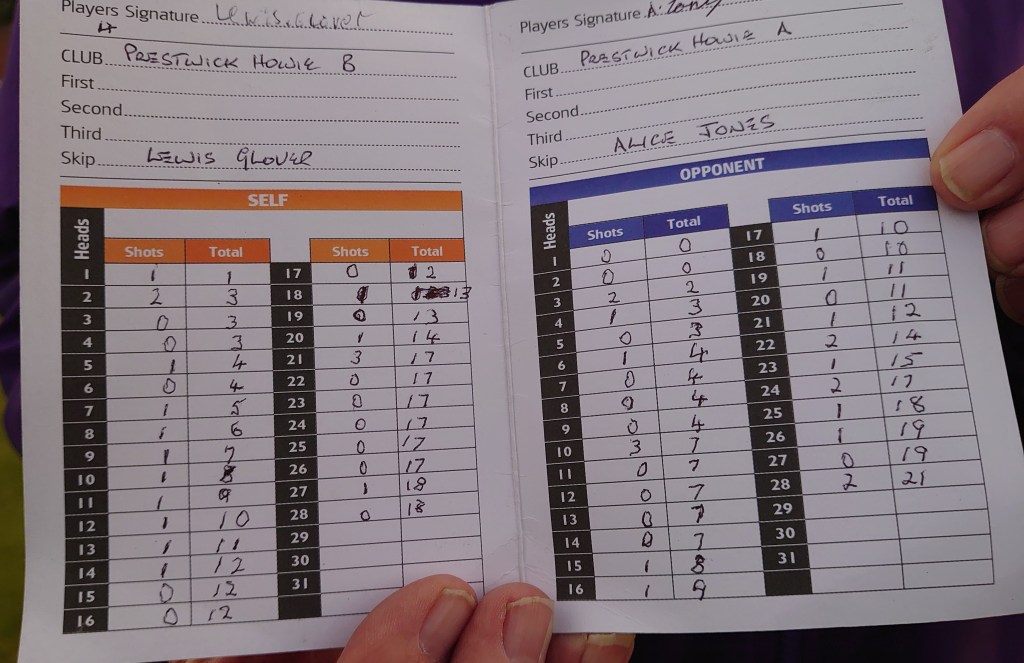 Players Signature Lewis.Glover
CLUB PRESTWICK HOWIE B
First
Second
Third
Skip LEWIS GLOVER
SELF
Heads Shots Total Shots Total
1 1 1 17 0 12
2 2 3 18 1 13
3 0 3 19 0 13
4 0 3 20 1 14
5 1 4 21 3 17
6 0 4 22 0 17
7 1 5 23 0 17
8 1 6 24 0 17
9 1 7 25 0 17
10 1 8 26 0 17
11 1 9 27 1 18
12 1 10 28 0 18
13 1 11 29
14 1 12 30
15 0 12 31
16 0 12
Players Signature A.
CLUB PRESTWICK HOWIE A
First
Second
Third
Skip ALICE JONES
OPPONENT
Heads Shots Total Shots Total
1 0 0 17 1 10
2 0 0 18 0 10
3 2 2 19 1 11
4 1 3 20 0 11
5 0 3 21 1 12
6 1 4 22 2 14
7 0 4 23 1 15
8 0 4 24 2 17
9 0 4 25 1 18
10 3 7 26 1 19
11 0 7 27 0 19
12 0 7 28 2 21
13 0 7 29
14 0 7 30
15 1 8 31
16 1 9